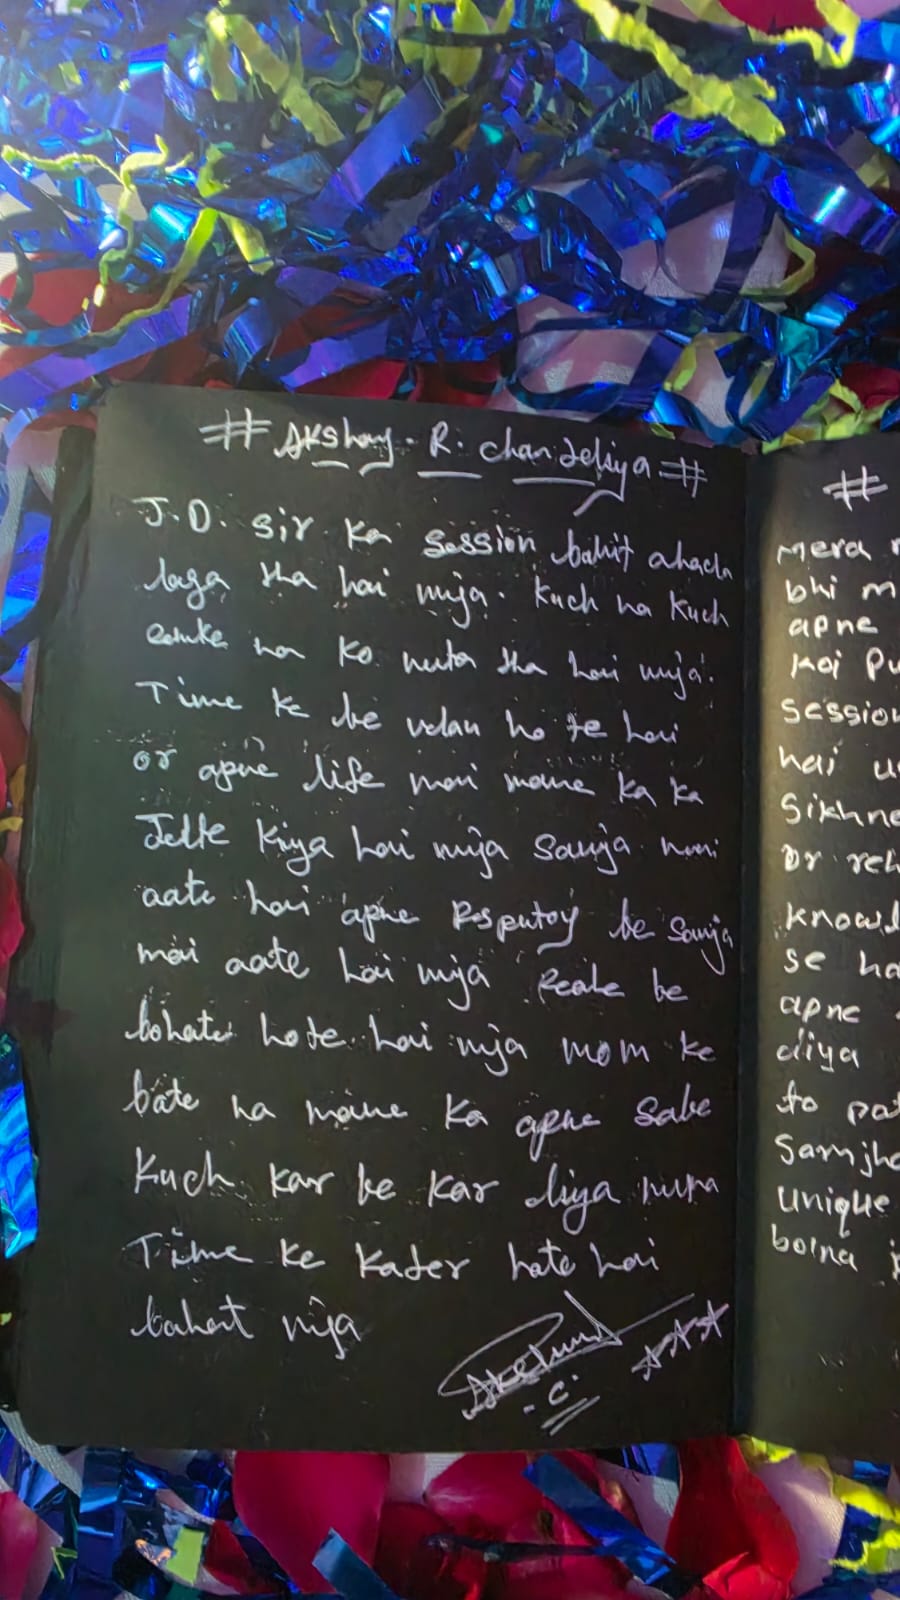 # Akshay. R. chandeliya #
J.D. sir ka session bahit ahacha
laga tha hai muja. Kuch na kuch
na ko tha hai muja.
Time ke be velan ho te hai
or apne life mai maine ka ka
Jelte kiya hai muja samja mai
aate hai apne Resputoy be samja
mai aate hai muja Reale be
bohate hote hai muja mom ke
bate na maine ka apne sabe
Kuch kar ke kar diya
Time ke kader hote hai
bahat muja
#
mera
bhi m
apne
koi pu
session
hai u
Sikhne
or reh
knowl
se ha
apne
diya
to pa
Samjha
unique
bolna